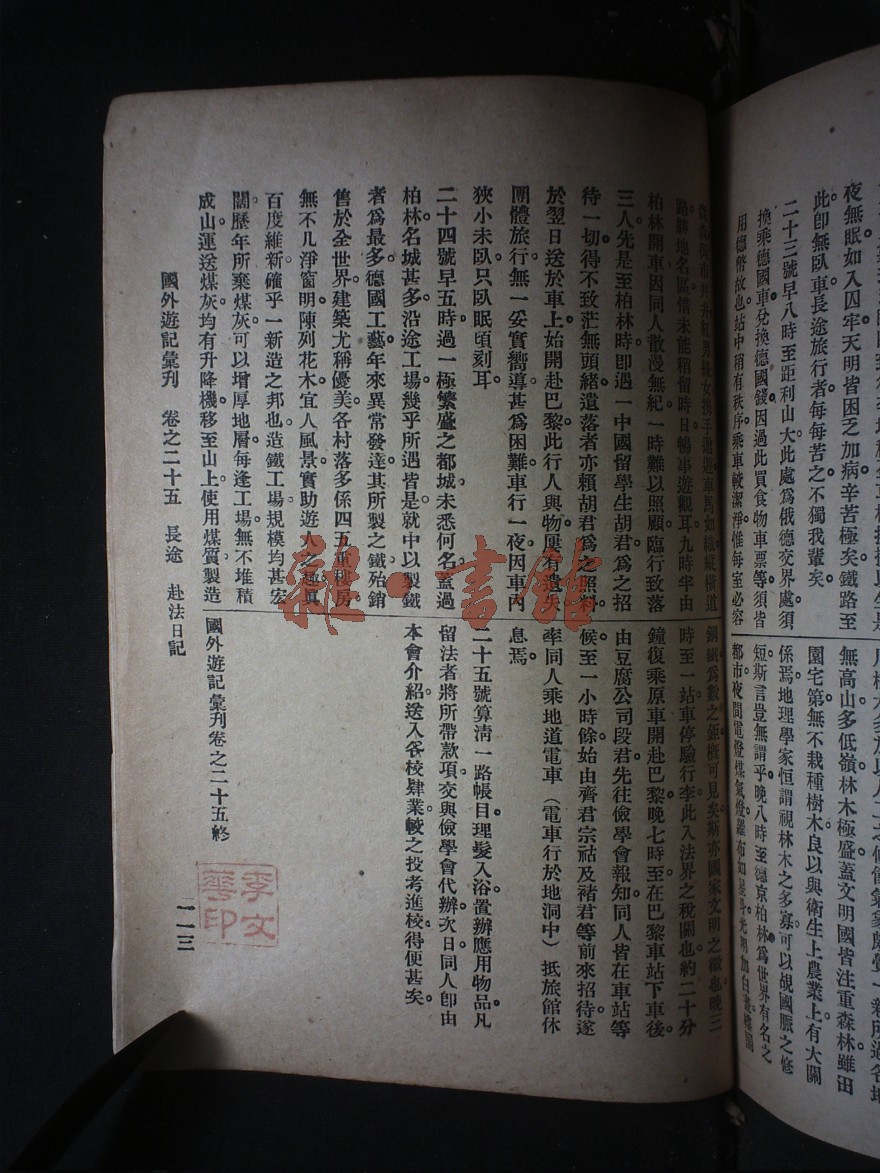 夜無眠如入囚牢天明皆困乏加病辛苦極矣鐵路至
此卽無臥車長途旅行者每每苦之不獨我輩矣。
二十三號早八時至距利山大此處爲俄德交界處須
換乘德國車兌換德國錢因過此買食物車票等須皆
用德幣故也站中稍有秩序乘車較潔淨惟每室必容
無高山多低嶺林木極盛蓋文明國皆注重森林雖田
園宅第無不栽種樹木良以與衞生上農業上有大關
係焉地理學家恒謂視林木之多寡可以覘國脈之修
短斯言豈無謂乎晚八時至德京柏林爲世界有名之
都市夜間電燈煤氣燈羅布如星斗光明加白晝樓閣
街市井井紅男綠女携手遨遊車馬如織縱橫道
路勝地名區惜未能稍留時日暢事遊觀耳九時半由
柏林開車因同人散漫無紀一時難以照顧臨行致落
三人先是至柏林時卽遇一中國留學生胡君爲之招
待一切得不致茫無頭緒遺落者亦賴胡君爲之照料
於翌日送於車上始開赴巴黎此行人與物屢有遺失
團體旅行無一妥實嚮導甚爲困難車行一夜因車內
狹小未臥只臥眠頃刻耳
二十四號早五時過一極繁盛之都城未悉何名蓋過
柏林名城甚多沿途工場幾乎所遇皆是就中以製鐵
者爲最多德國工藝年來異常發達其所製之鐵殆銷
售於全世界建築尤稱優美各村落多係四五重樓房
無不几淨窗明陳列花木宜人風景實助遊人之趣眞
百度維新確乎一新造之邦也造鐵工場規模均甚宏
闊歷年所棄煤灰可以增厚地層每逢工場無不堆積
成山運送煤灰均有升降機移至山上使用煤質製造
鋼鐵爲數之鉅槪可見矣斯亦國家文明之徵也晚三
時至一站車停驗行李此入法界之稅關也約二十分
鐘復乘原車開赴巴黎晚七時至在巴黎車站下車後
由豆腐公司段君先往儉學會報知同人皆在車站等
候至一小時餘始由齊君宗祜及褚君等前來招待遂
率同人乘地道電車（電車行於地洞中）抵旅館休
息焉。
二十五號算清一路帳目理髮入浴置辦應用物品凡
留法者將所帶款項交與儉學會代辦次日同人卽由
本會介紹送入各校肄業較之投考進校得便甚矣。
國外遊記彙刊卷之二十五終
國外遊記彙刊　卷之二十五　長途　赴法日記
一一三
李文華印
雜·書館